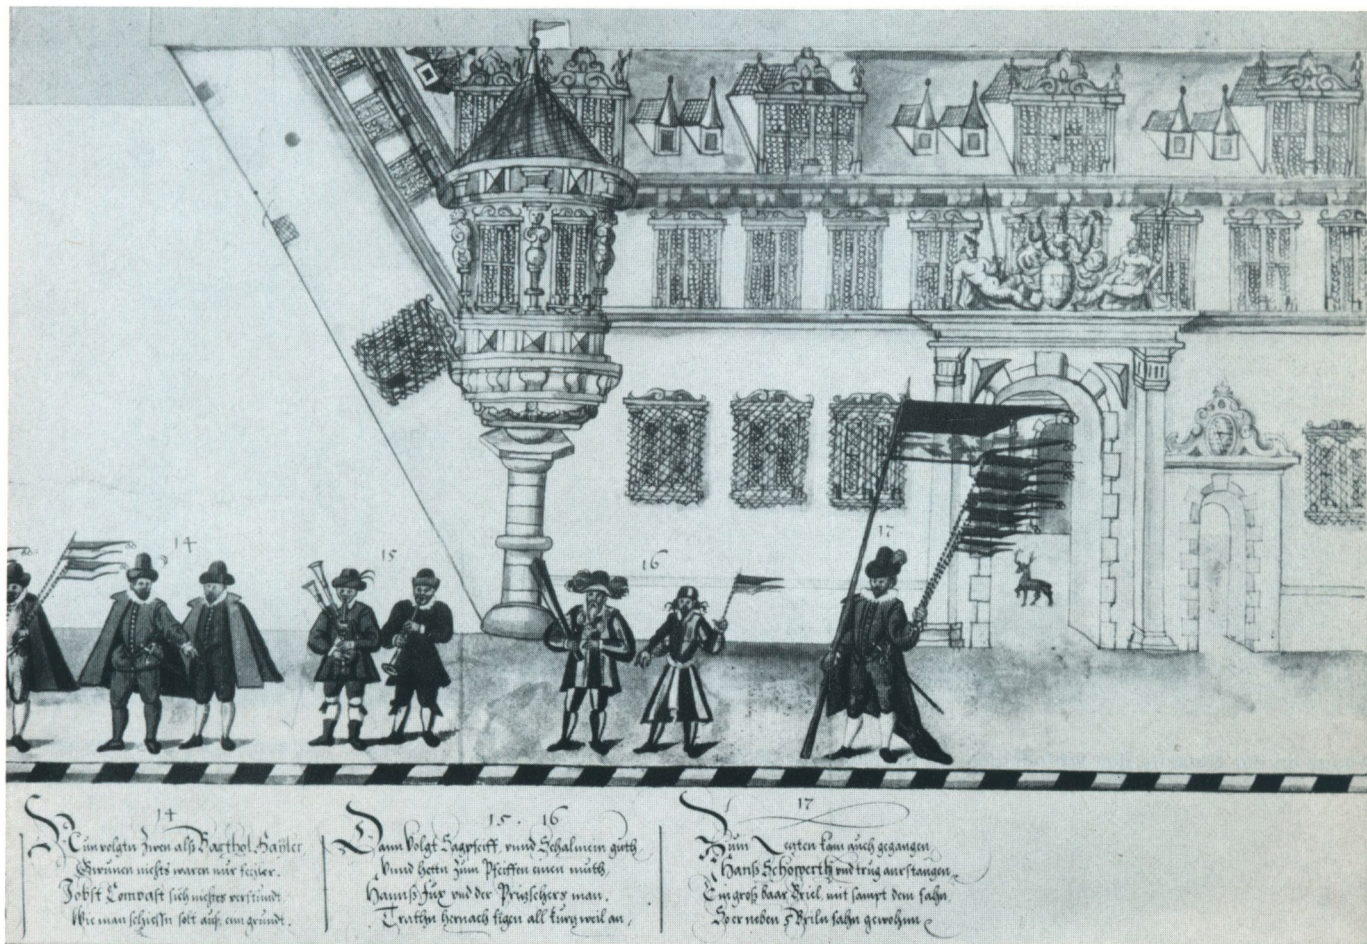 14
15
16
17
14
Nun volgtn Zwen alß Barthol Sayler,
Gwunen nichts waren nur feyler.
Jobst Compast sich nichts verstundt
Wie man schiessn solt auf ein grundt.
15. 16
Dann Volgt Sagpfeiff vnnd Schalmein guth
Vnnd hettn zum Pfeiffen einen muth
Hannß Fux vnd der Prigschers man.
Trathn hernach figen all kurtzweil an,
17
Zum Letzten kam auch gegangen,
Hanß Schopperth vnd trug an stangen,
Ein groß baar Briel, mit sampt dem fahn,
So er neben 5 Briln fahn gewohnn